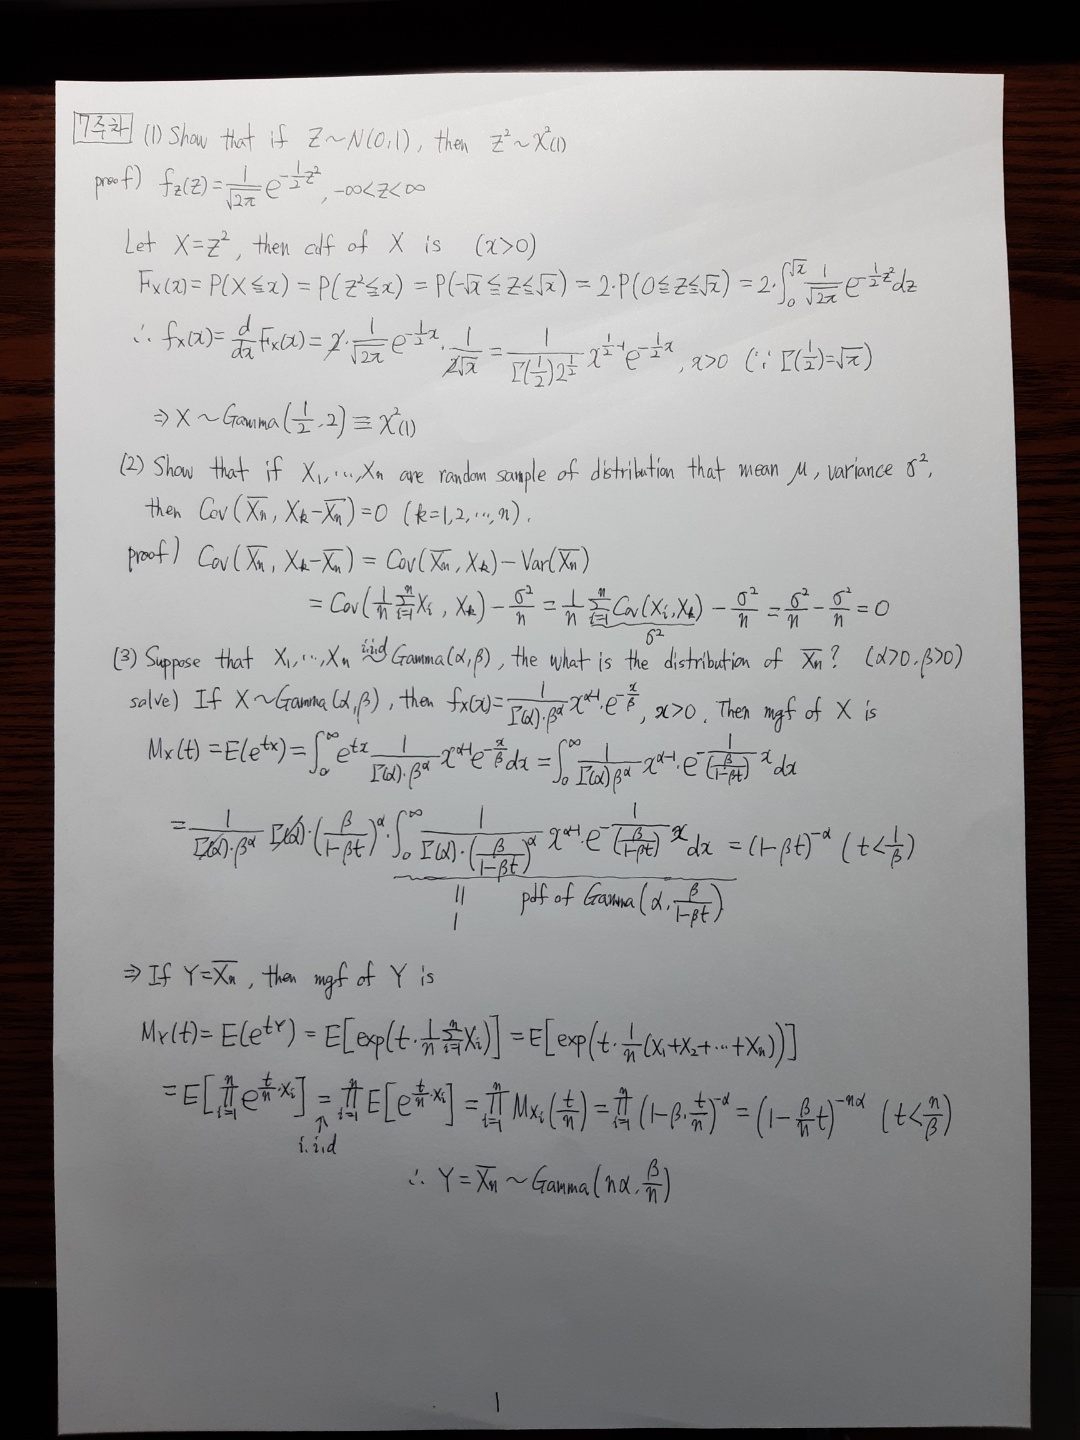 7주차 (1) Show that if Z~N(0,1), then Z²~χ²(1)
proof) f_Z(z)=1/√(2π) e^(-1/2 z²), -∞<z<∞
Let X=Z², then cdf of X is (x>0)
F_X(x)=P(X≦x)=P(Z²≦x)=P(-√x≦Z≦√x)=2·P(0≦Z≦√x)=2·∫_0^√x 1/√(2π) e^(-1/2 z²)dz
∴ f_X(x)=d/dx F_X(x)=2·1/√(2π) e^(-1/2 x)·1/(2√x)=1/(Γ(1/2)2^(1/2)) x^(1/2-1)e^(-1/2 x), x>0 (∵Γ(1/2)=√π)
⇒X~Gamma(1/2,2)≡χ²(1)
(2) Show that if X₁,…,Xn are random sample of distribution that mean μ, variance σ²,
then Cov(X̄n, Xk-X̄n)=0 (k=1,2,…,n).
proof) Cov(X̄n, Xk-X̄n)=Cov(X̄n, Xk)-Var(X̄n)
=Cov(1/n Σ_{i=1}^n Xi, Xk)-σ²/n=1/n Σ_{i=1}^n Cov(Xi,Xk)-σ²/n=σ²/n-σ²/n=0
σ²
(3) Suppose that X₁,…,Xn i.i.d ~ Gamma(α,β), the what is the distribution of X̄n? (α>0,β>0)
solve) If X~Gamma(α,β), then f_X(x)=1/(Γ(α)·β^α) x^(α-1)·e^(-x/β), x>0. Then mgf of X is
M_X(t)=E(e^(tx))=∫_0^∞ e^(tx) 1/(Γ(α)·β^α) x^(α-1)e^(-x/β)dx=∫_0^∞ 1/(Γ(α)β^α) x^(α-1)·e^(-1/(β/(1-βt)) x)dx
=1/(Γ(α)·β^α) Γ(α)·(β/(1-βt))^α·∫_0^∞ 1/(Γ(α)·(β/(1-βt))^α) x^(α-1)·e^(-1/(β/(1-βt)) x)dx=(1-βt)^(-α) (t<1/β)
|| pdf of Gamma(α, β/(1-βt))
1
⇒If Y=X̄n, then mgf of Y is
M_Y(t)=E(e^(tY))=E[exp(t·1/n Σ_{i=1}^n Xi)]=E[exp(t·1/n(X₁+X₂+…+Xn))]
=E[∏_{i=1}^n e^(t/n·Xi)]=∏_{i=1}^n E[e^(t/n·Xi)]=∏_{i=1}^n M_Xi(t/n)=∏_{i=1}^n (1-β·t/n)^(-α)=(1-β/n t)^(-nα) (t<n/β)
↑
i.i.d
∴ Y=X̄n~Gamma(nα, β/n)
1